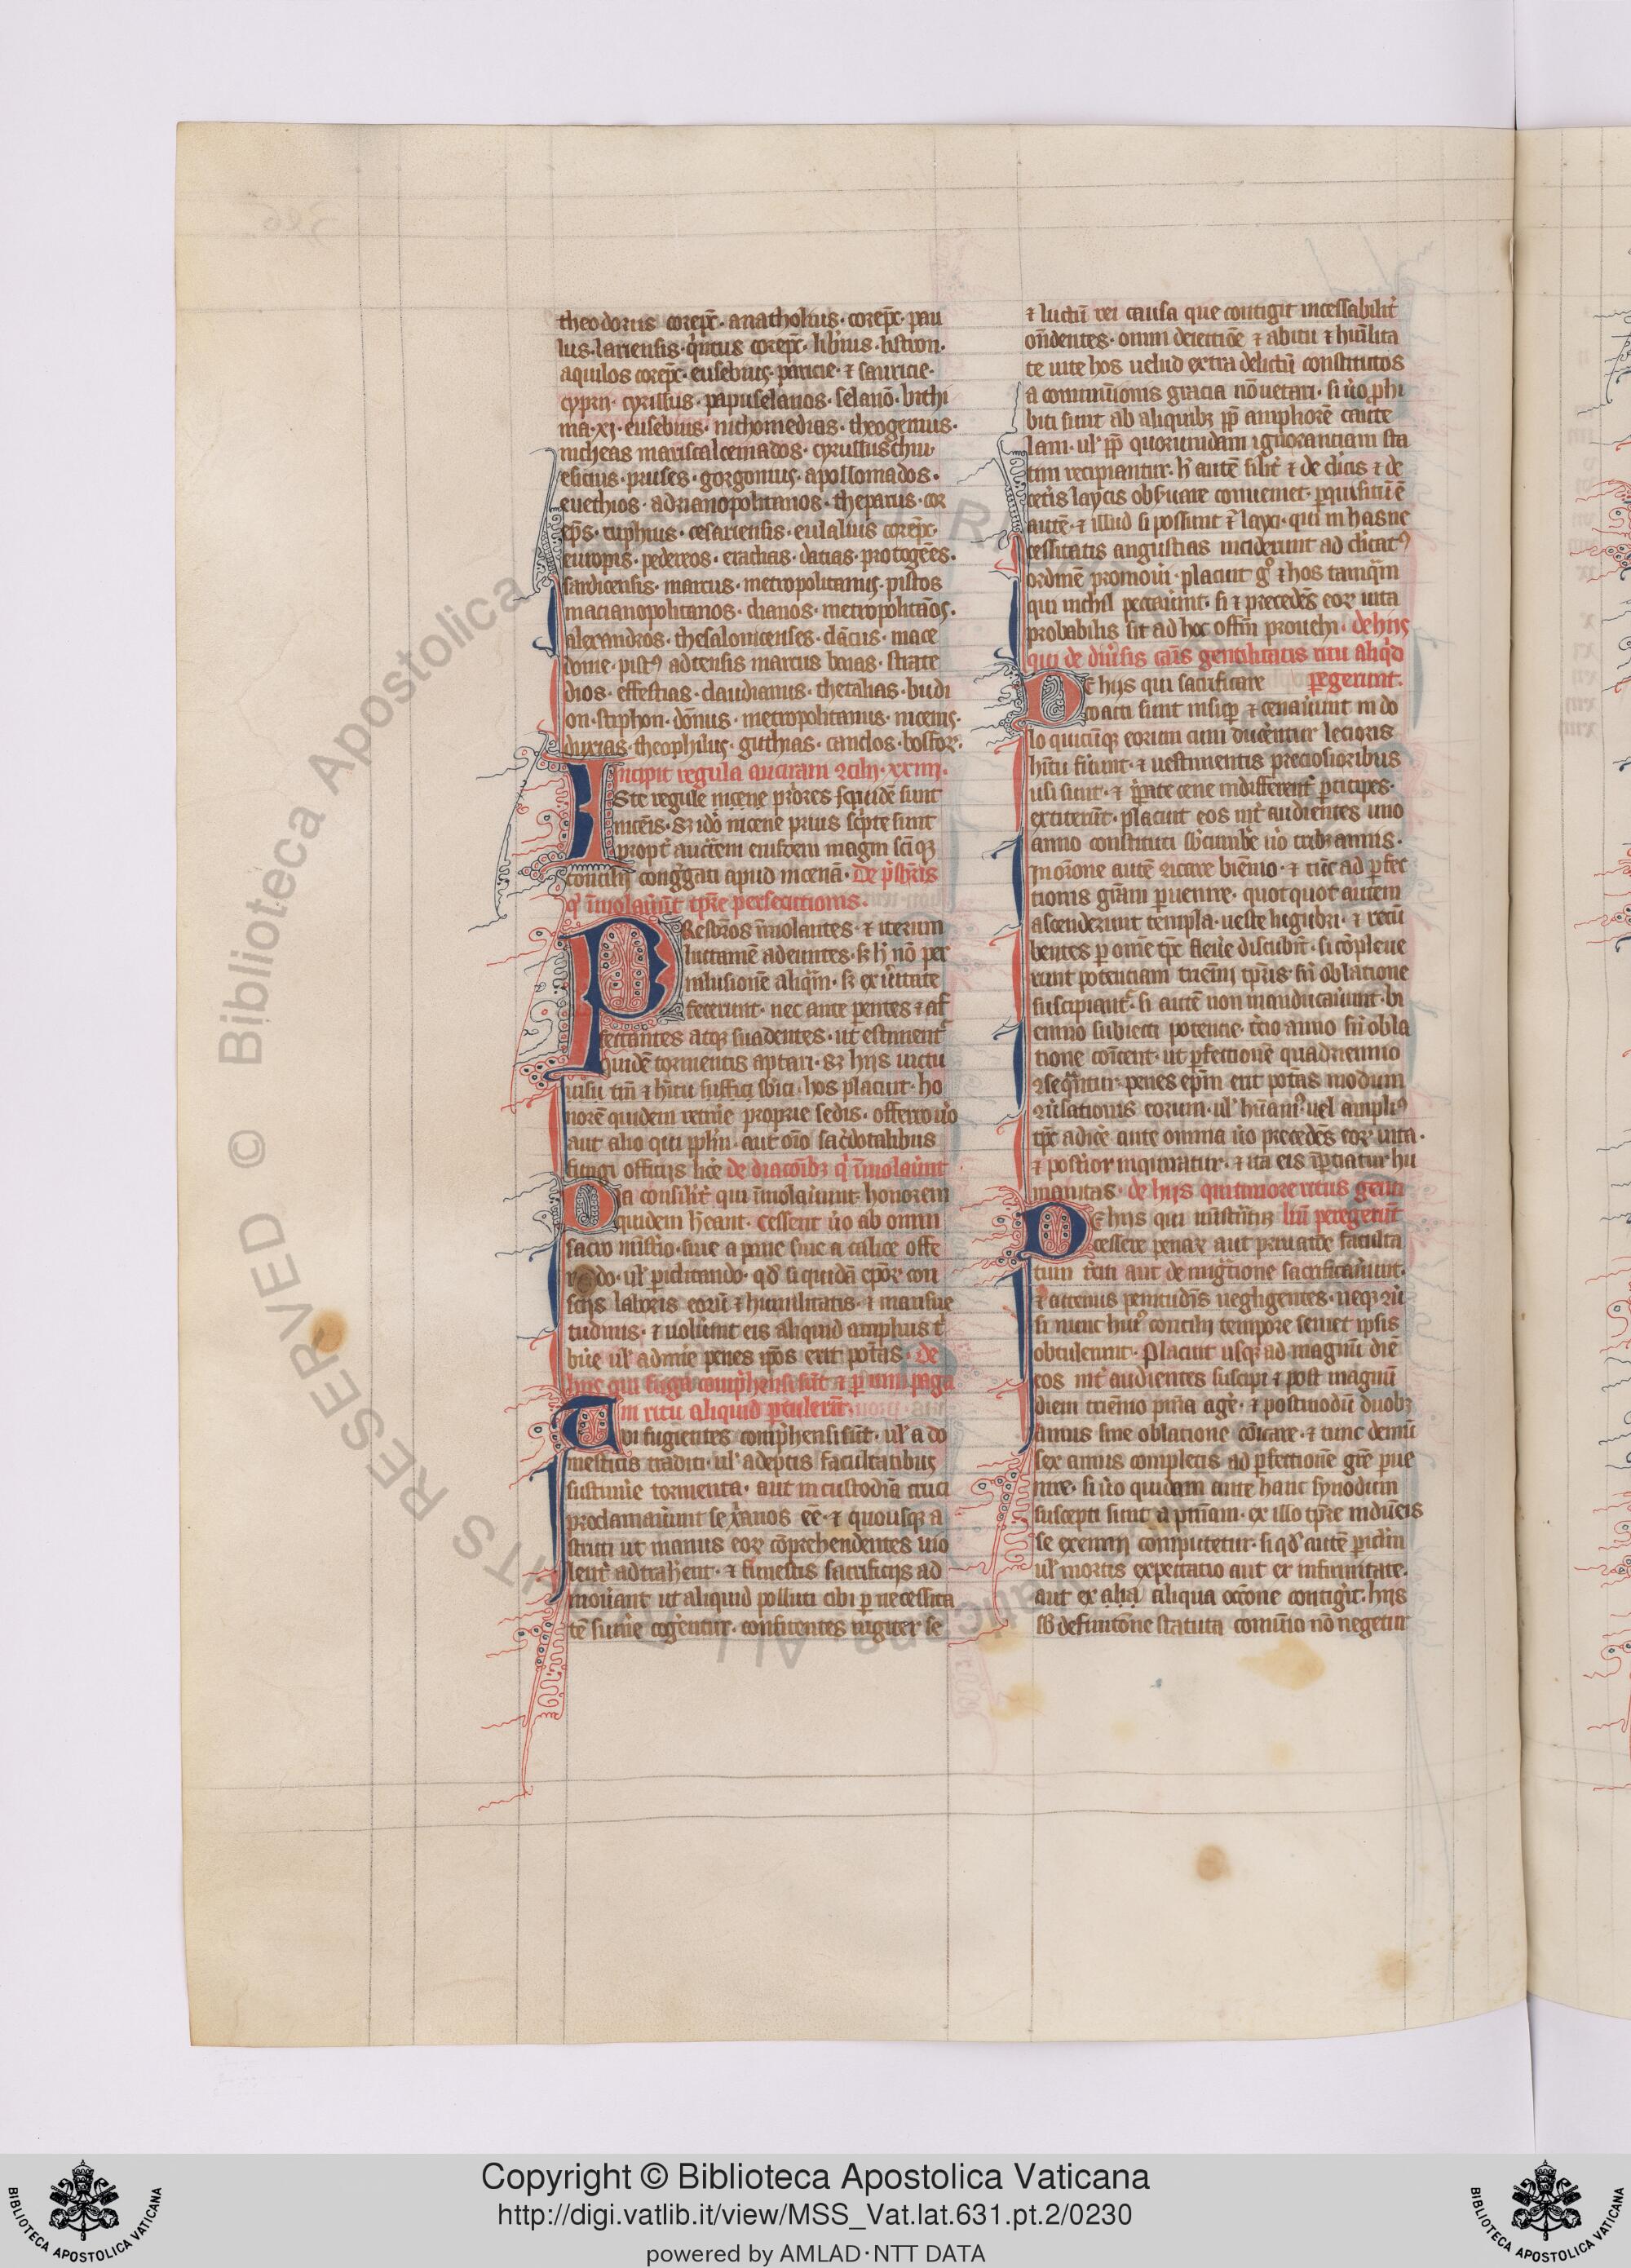 theodorus corepc̄· anatholius· corepc̄· pau
lus· lariensis· q̇ntus corepc̄· libius· listron·
aquilos corepc̄· eusebius· paricie· ⁊ saurie·
cyprii· cyrillus· paphuselanos· selanō· bithi
nia· xj· eusebius· nichomedias· theogenius·
nicheas mariscalcemados· cyrullus chiu·
esicius· pruses· gorgonius· apollomados·
euethios· adrianopolitanos· thepatus· cor
ep̄s· euphius· cesariensis· eulalius corepc̄·
europis· pedereos· eradias· datias· protogēes·
sardicensis· marcus· metropolitanus· pistos
macianopolitanos· dianos· metropolitāos·
alexandros· thesalonicenses· dācus· mace
donie· pistꝰ adtensis marcus boias· strate
dios· effestias· claudianus· thetalias· budi
on· stiphon· dōnus· metropolitanus· nicenis·
duxias· theophilus· guthias· camdos· bosfor·
Incipit regula ancirani ꝯcilij· xxiiij·
Iste regule nicene priores sequidē sunt
nicēis· sꝫ idō nicene prius scpte sunt
propt̄ auctem eiusdem magni scīqꝫ
concilij conggati apud nicenā· De pr̄sbris
q̇ īmolauūt tp̄re persecutionis·
Presbr̄os īmolantes· ⁊ iterum
luctamē adeuntes· sꝫ h̄ nō per
inlusionē aliqm̄· sꝫ ex ūitate
fecerunt· nec ante parentes ⁊ af
fectantes atqꝫ suadentes· ut estiment᷑
quidē tormentis aptari· sꝫ hijs uictu
uisu tn̄ ⁊ hītu suffici sbici· hos placuit· ho
norē quidem retine proprie sedis· offerro ūo
aut alio qui pplm̄· aut oīo sac̄dotalibus
fungi officijs lice de diaconibꝫ q̇ īmolauint
Diaconi silit᷑ qui īmolauiunt· honorem
quidem heant· cessent ūo ab omni
sacro mīstio· siue a pane siue a calice offe
rendo· ul̄ pdicando· qd̄ si quidā epoꝝ con
scijs laboris eorū ⁊ humilitatis· ⁊ mansue
tudinis· ⁊ uoluint eis aliquid amplius t̄
bue ul̄ adimē penes ip̄os erit pot̄as· de
hijs qui fuga comphensi sūt ⁊ p uim paga
ni ritu aliquid ptulerūt·
Qui fugientes comphensi sūt· ul̄ a do
mesticis traditi· ul̄ adeptis facultatibus
sustinuie tormenta· aut in custodiā truci
proclamauiunt se xp̄anos eē· ⁊ quousqꝫ a
stricti ut manus eoꝝ cōprehendentes uio
lent᷑ adtrahent· ⁊ funestis sacrificijs ad
mouant ut aliquid polluti cibi p necessita
tē sumē cogentur· confitentes iugiter se
⁊ luctū rei causa que contigit incessabilit᷑
on̄dentes· omni deiectiōe ⁊ abitu ⁊ humilita
te uite hos uelud extra delictū constitutos
a communionis gracia nō uetari· si ūo phi
biti sunt ab aliquibꝫ pp̄ ampliorē caute
lam· ul̄ pp̄ quorumdam ignorantiam sta
tim recipiantur· h̄ autē silit᷑ ⁊ de clicis ⁊ de
cetis laycis obsuare conueniet· pquisitū ē
autē· ⁊ illud si possunt ⁊ layci· qui in has ne
cessitatis angustias inciderunt ad clicatꝰ
ordinē promoui· placuit gͦ ⁊ hos tamqm̄
qui nichil peccauint· si ⁊ precedēs eoꝝ uita
probabilis sit ad hoc offm̄ prouehi· de hijs
qui de diūsis cāis gentilitatis ritu aliqd
De hijs qui sacrificare pegerunt·
coacti sunt insup ⁊ cenauiunt in do
lo quicūqꝫ eorum cum ducerentur lecioris
hītu fuūnt· ⁊ uestimentis preciosioribus
usi sunt· ⁊ pparate cene indifferent᷑ pticipes·
extiterūt· placuit eos int᷑ audientes uno
anno constitui sbcumbē ūo tribꝫ annis·
in orōne autē ꝯicare biēnio· ⁊ tūc ad pfec
tionis grām puenire· quotquot autem
ascenderunt templa· ueste lugubri· ⁊ recū
bentes p omē tp̄c fleue discubūt· si cōpleue
runt potentiam trienij tp̄ris· sn̄ oblatione
suscipiant᷑· si autē non manducauiunt· bi
ennio subiecti potencie· t̄cio anno sn̄ obla
tione cōicent· ut pfectionē quadriennio
ꝯseqntur· penes ep̄m erit pot̄as modum
ꝯūsationis eorum· ul̄ hūaniꝰ uel ampliꝰ
tp̄c adice· ante omnia ūo precedēs eoꝝ uita·
⁊ postior inquiratur· ⁊ ita eis īptiatur hu
manitas· de hijs qui timore ritus genti
De hijs qui minitātibꝫ liū peregerūt
cessere penaꝝ aut priuatōe faculta
tum t̄riti aut de migratione sacrificauiunt·
⁊ actenus penitudīs negligentes· neqꝫ ꝯū
si nunc huiꝰ concilij tempore semet ipsis
obtulerunt· Placuit usqꝫ ad magnū diē
eos int᷑ audientes suscipi ⁊ post magnū
diem triēnio pn̄ia agē· ⁊ postmodū duobꝫ
annis sine oblatione cōicare· ⁊ tunc demū
sex annis completis ad pfectionē gr̄e pue
nire· si ūo quidam ante hanc synodum
suscepti sunt ad pnīam· ex illo tp̄re inductis
se exennij computetur· si qd̄ autē piclm
ul̄ mortis expectatio aut ex infirmitate·
aut ex alia aliqua occōne contigit· hijs
sb̄ definitōne statuta comunio nō negetur
Copyright © Biblioteca Apostolica Vaticana
http://digi.vatlib.it/view/MSS_Vat.lat.631.pt.2/0230
powered by AMLAD·NTT DATA
BIBLIOTECA APOSTOLICA VATICANA
BIBLIOTECA APOSTOLICA VATICANA